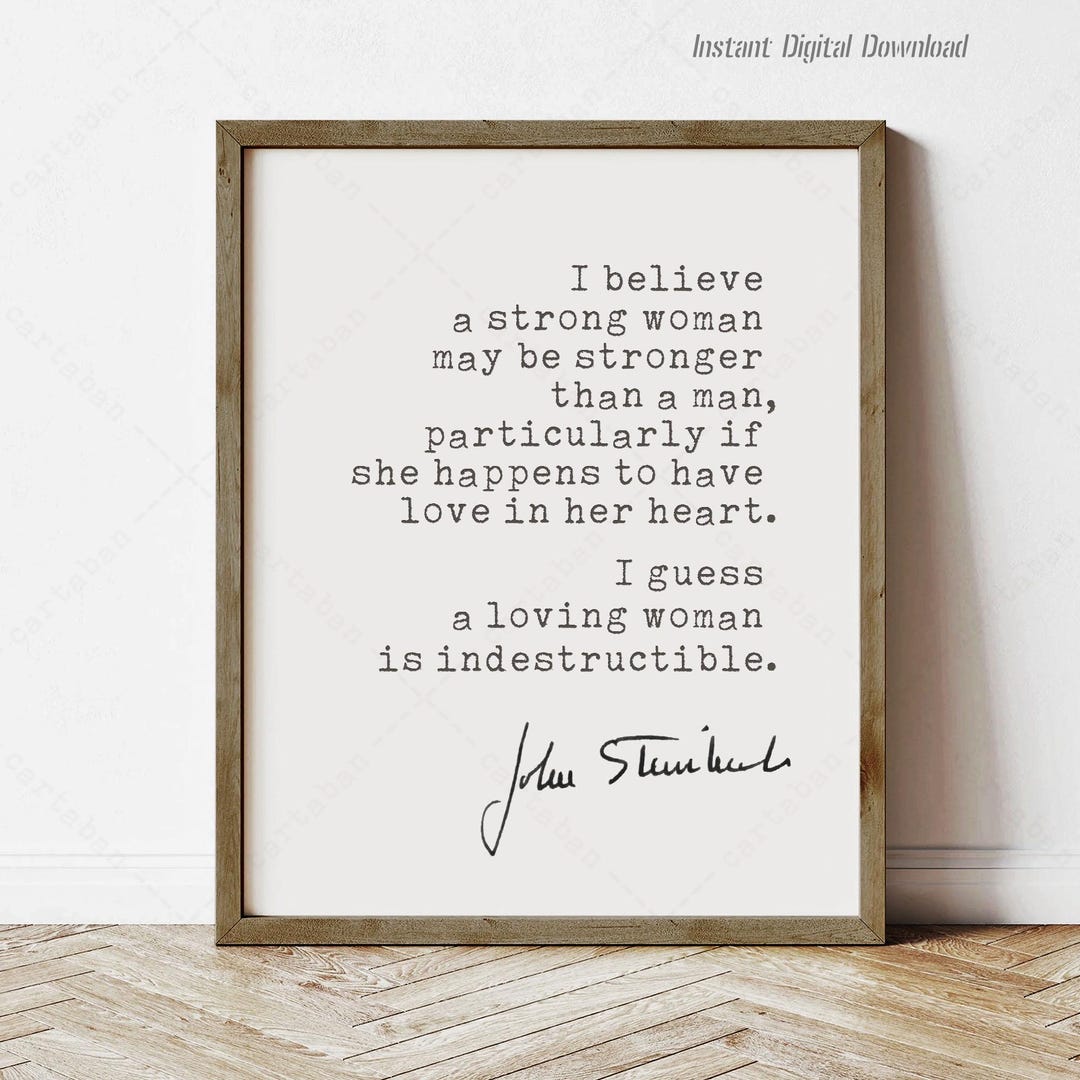 Instant Digital Download
I believe
a strong woman
may be stronger
than a man,
particularly if
she happens to have
love in her heart.
I guess
a loving woman
is indestructible.
John Steinbeck
cartaban